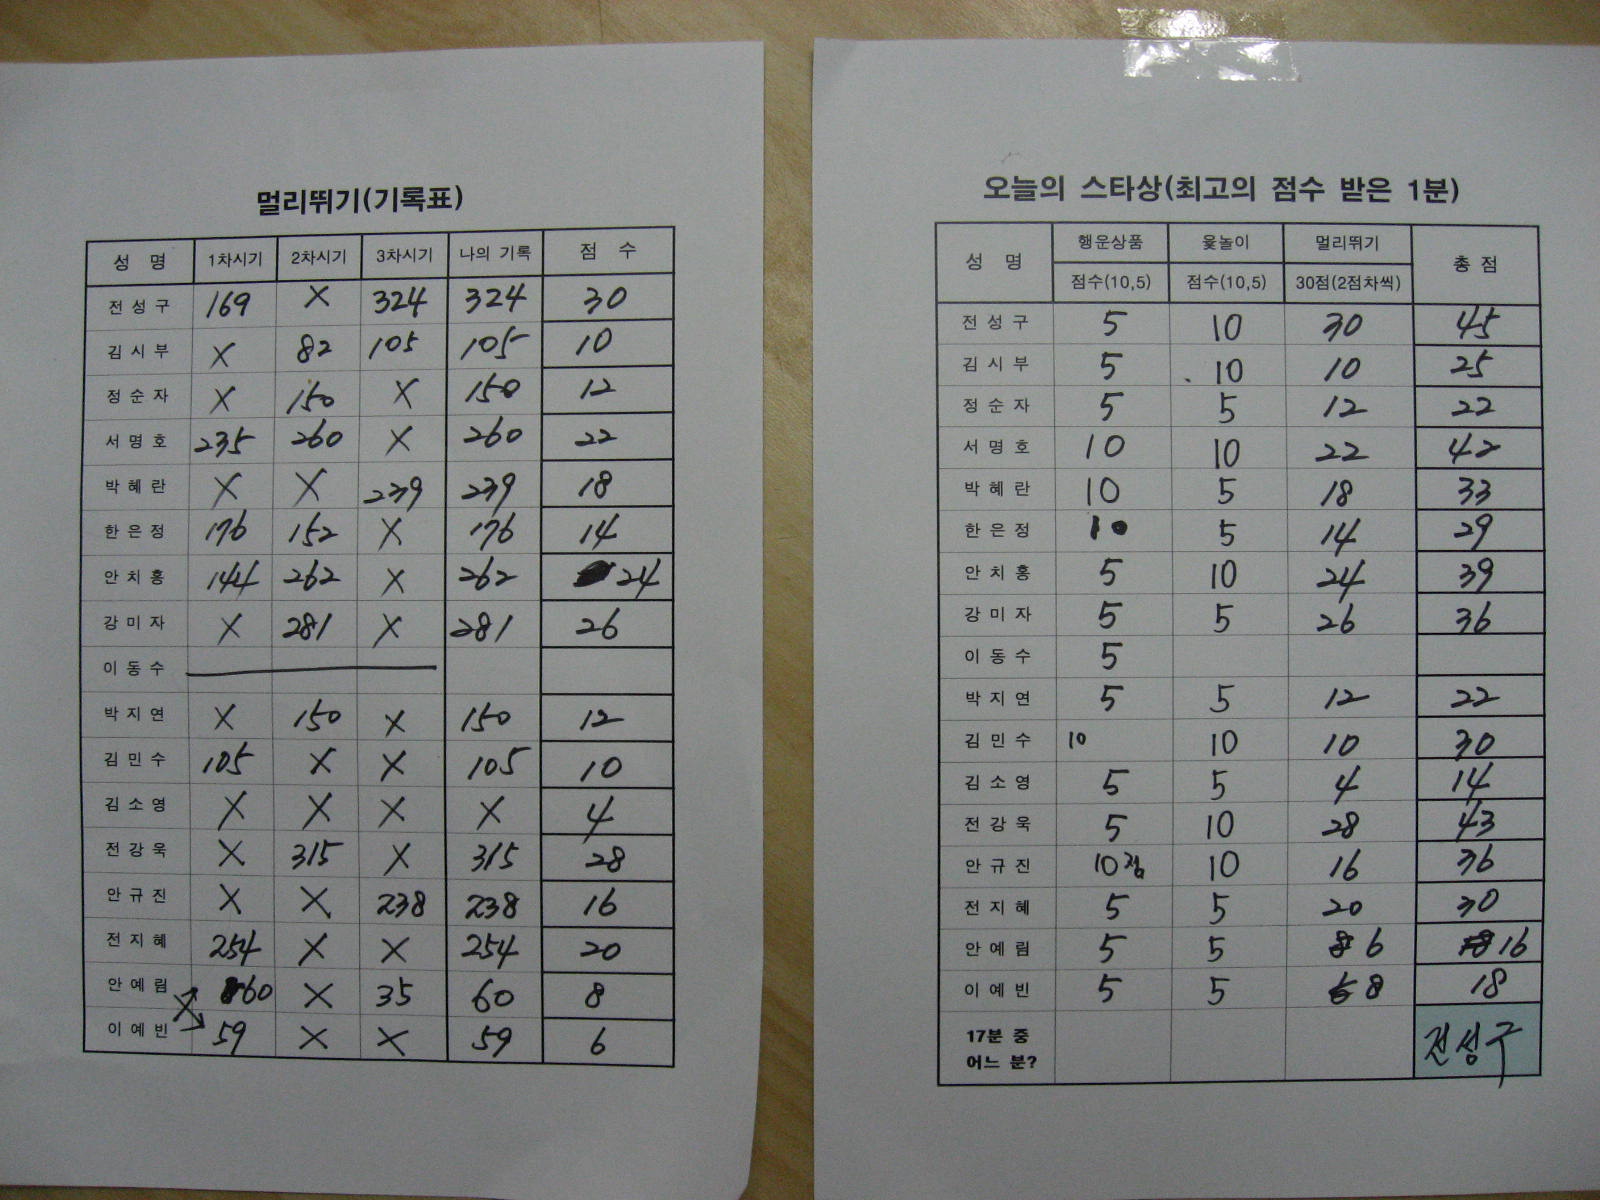 멀리뛰기(기록표)
성 명 1차시기 2차시기 3차시기 나의 기록 점 수
전성구 169 X 324 324 30
김시부 X 82 105 105 10
정순자 X 150 X 150 12
서명호 235 260 X 260 22
박혜란 X X 239 239 18
한은정 176 152 X 176 14
안치홍 144 262 X 262 24
강미자 X 281 X 281 26
이동수
박지연 X 150 X 150 12
김민수 105 X X 105 10
김소영 X X X X 4
전강욱 X 315 X 315 28
안규진 X X 238 238 16
전지혜 254 X X 254 20
안예림 60 X 35 60 8
이예빈 59 X X 59 6
오늘의 스타상(최고의 점수 받은 1분)
성 명 행운상품 윷놀이 멀리뛰기 총 점
점수(10,5) 점수(10,5) 30점(2점차씩)
전성구 5 10 30 45
김시부 5 10 10 25
정순자 5 5 12 22
서명호 10 10 22 42
박혜란 10 5 18 33
한은정 10 5 14 29
안치홍 5 10 24 39
강미자 5 5 26 36
이동수 5
박지연 5 5 12 22
김민수 10 10 10 30
김소영 5 5 4 14
전강욱 5 10 28 43
안규진 10점 10 16 36
전지혜 5 5 20 30
안예림 5 5 6 16
이예빈 5 5 8 18
17분 중
어느 분? 전성구